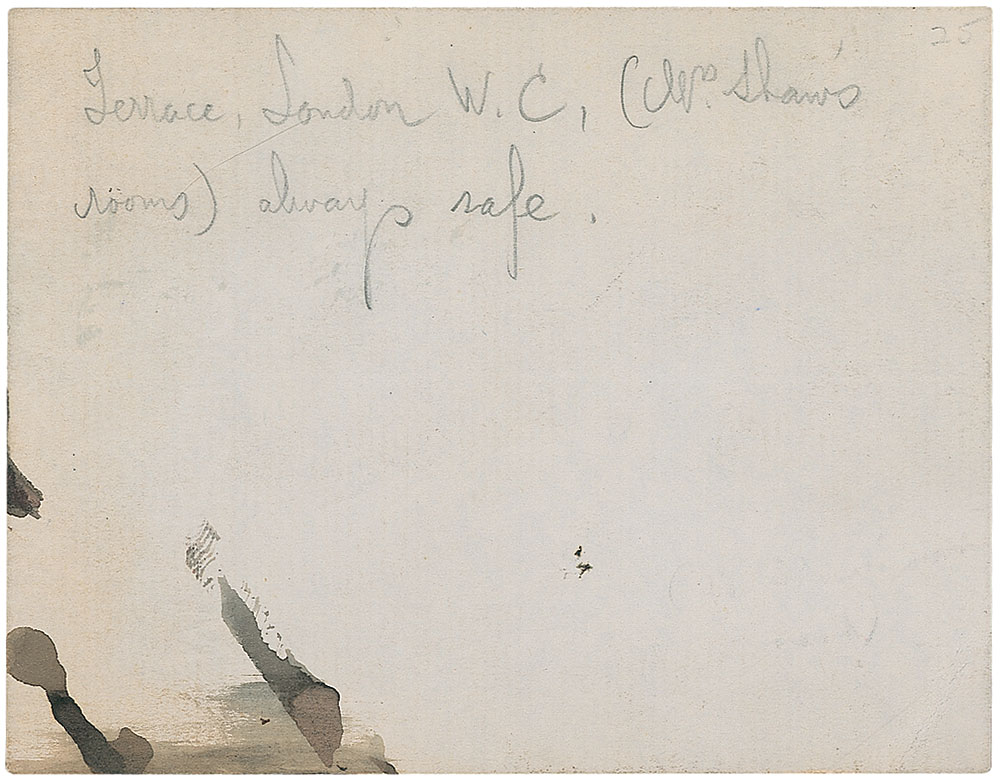 25
Terrace, London W.C, (Mrs. Shaw's
rooms) always safe.